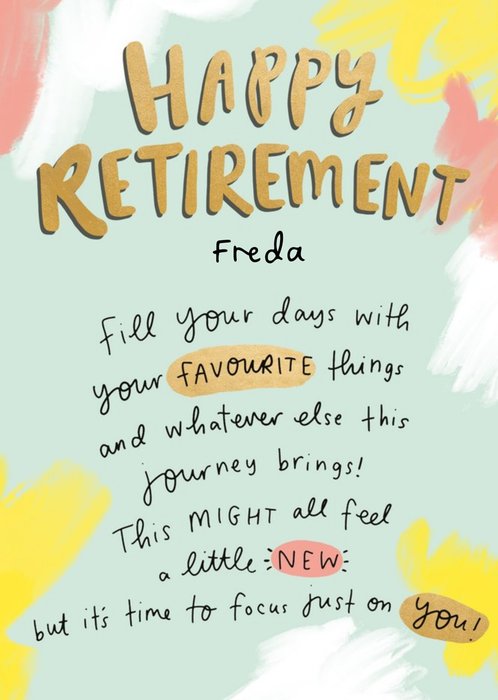 HAPPY
RETIREMENT
Freda
fill your days with
your FAVOURITE things
and whatever else this
journey brings!
This MIGHT all feel
a little NEW
but it's time to focus just on you!